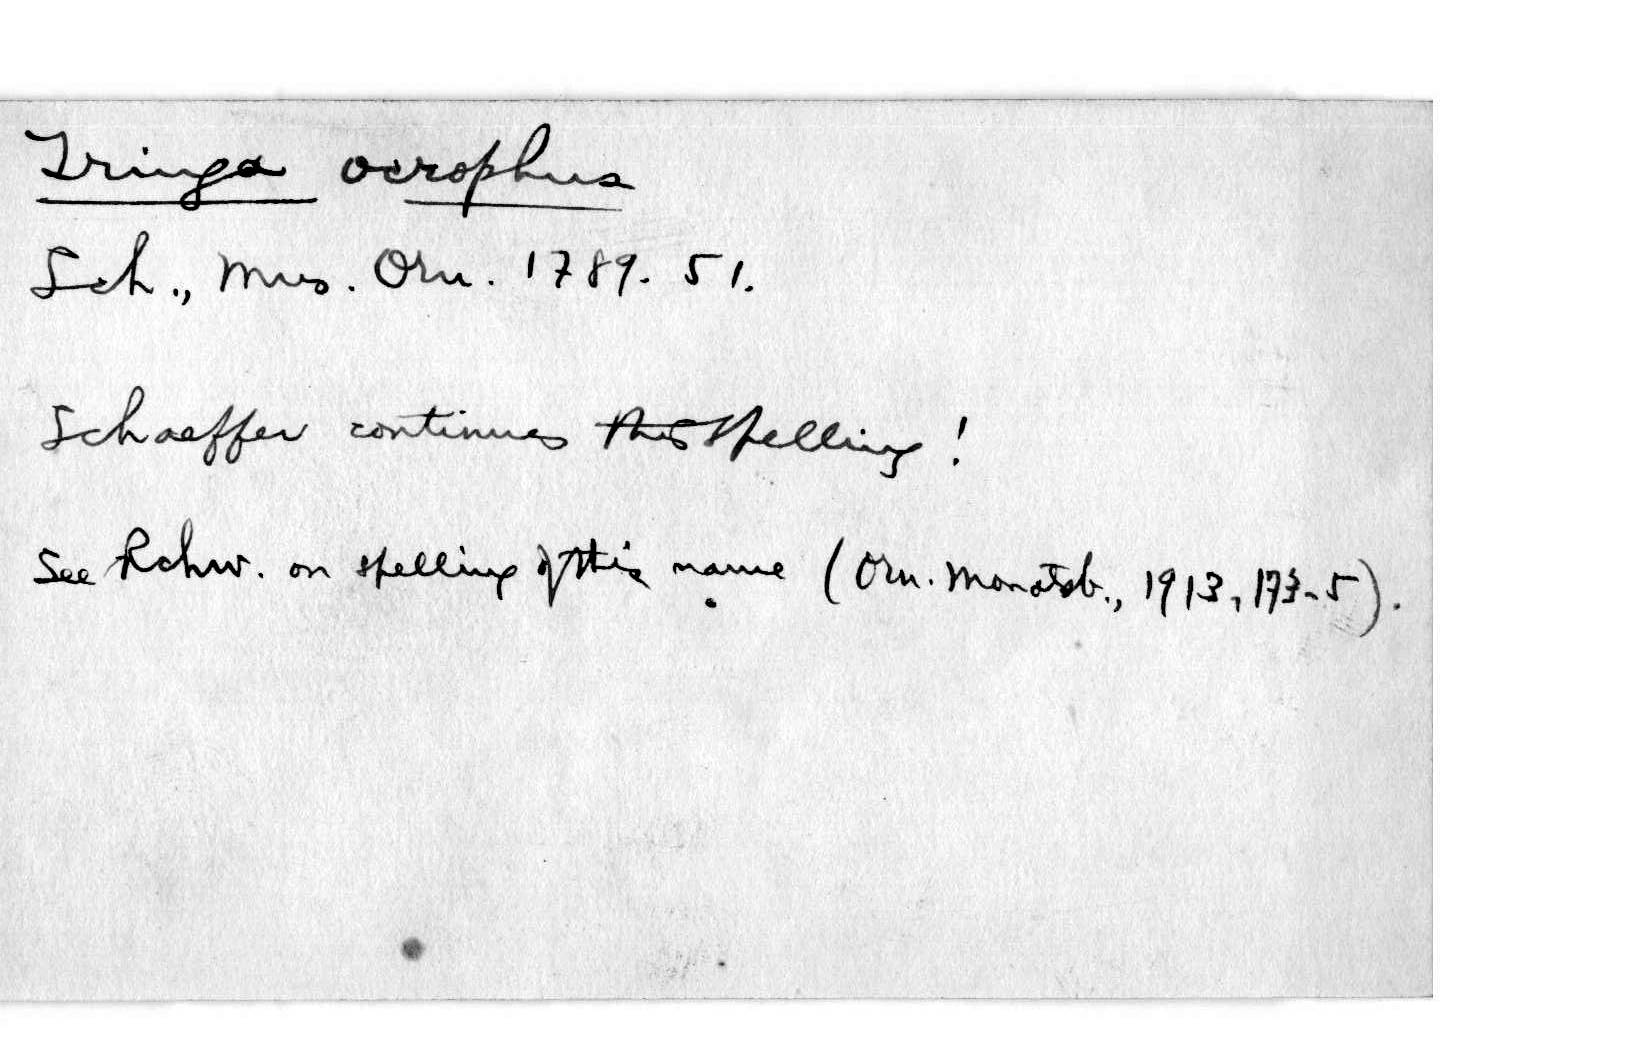 Tringa ocrophus
Sch., Mus. Orn. 1789. 51.
Schaeffer continues this spelling!
See Rchw. on spelling of this name (Orn. Monatsb., 1913, 173-5).